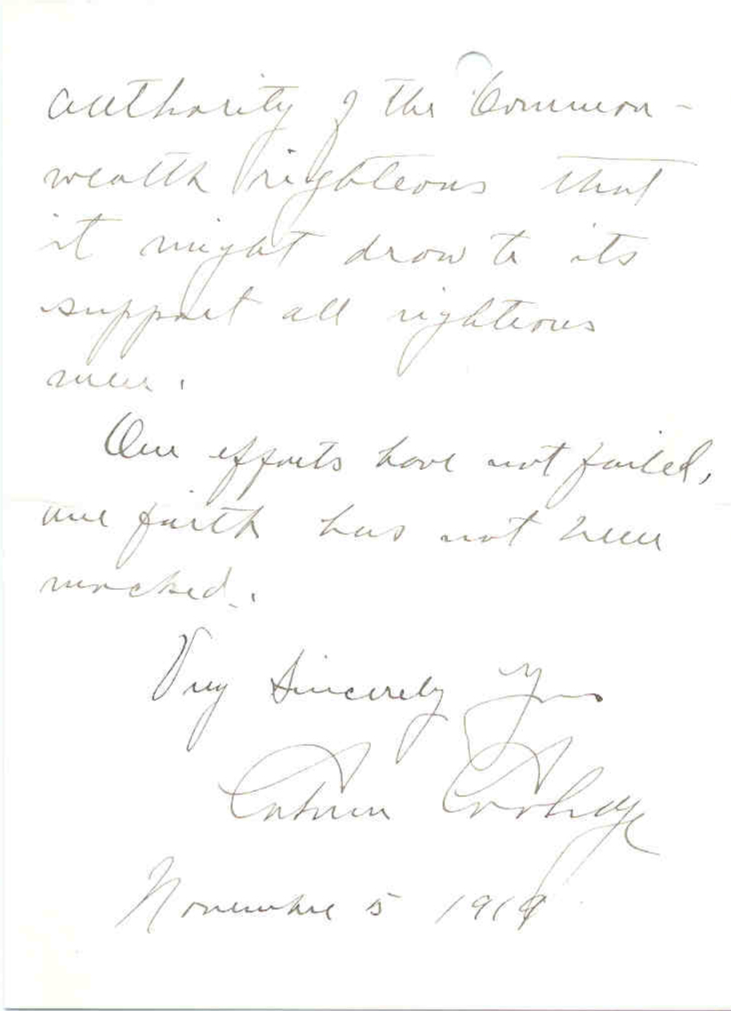 authority of the Common-
wealth righteous that
it might draw to its
support all righteous
men.
Our efforts have not failed,
our faith has not been
mocked.
Very Sincerely Yours
Calvin Coolidge
November 5 1919